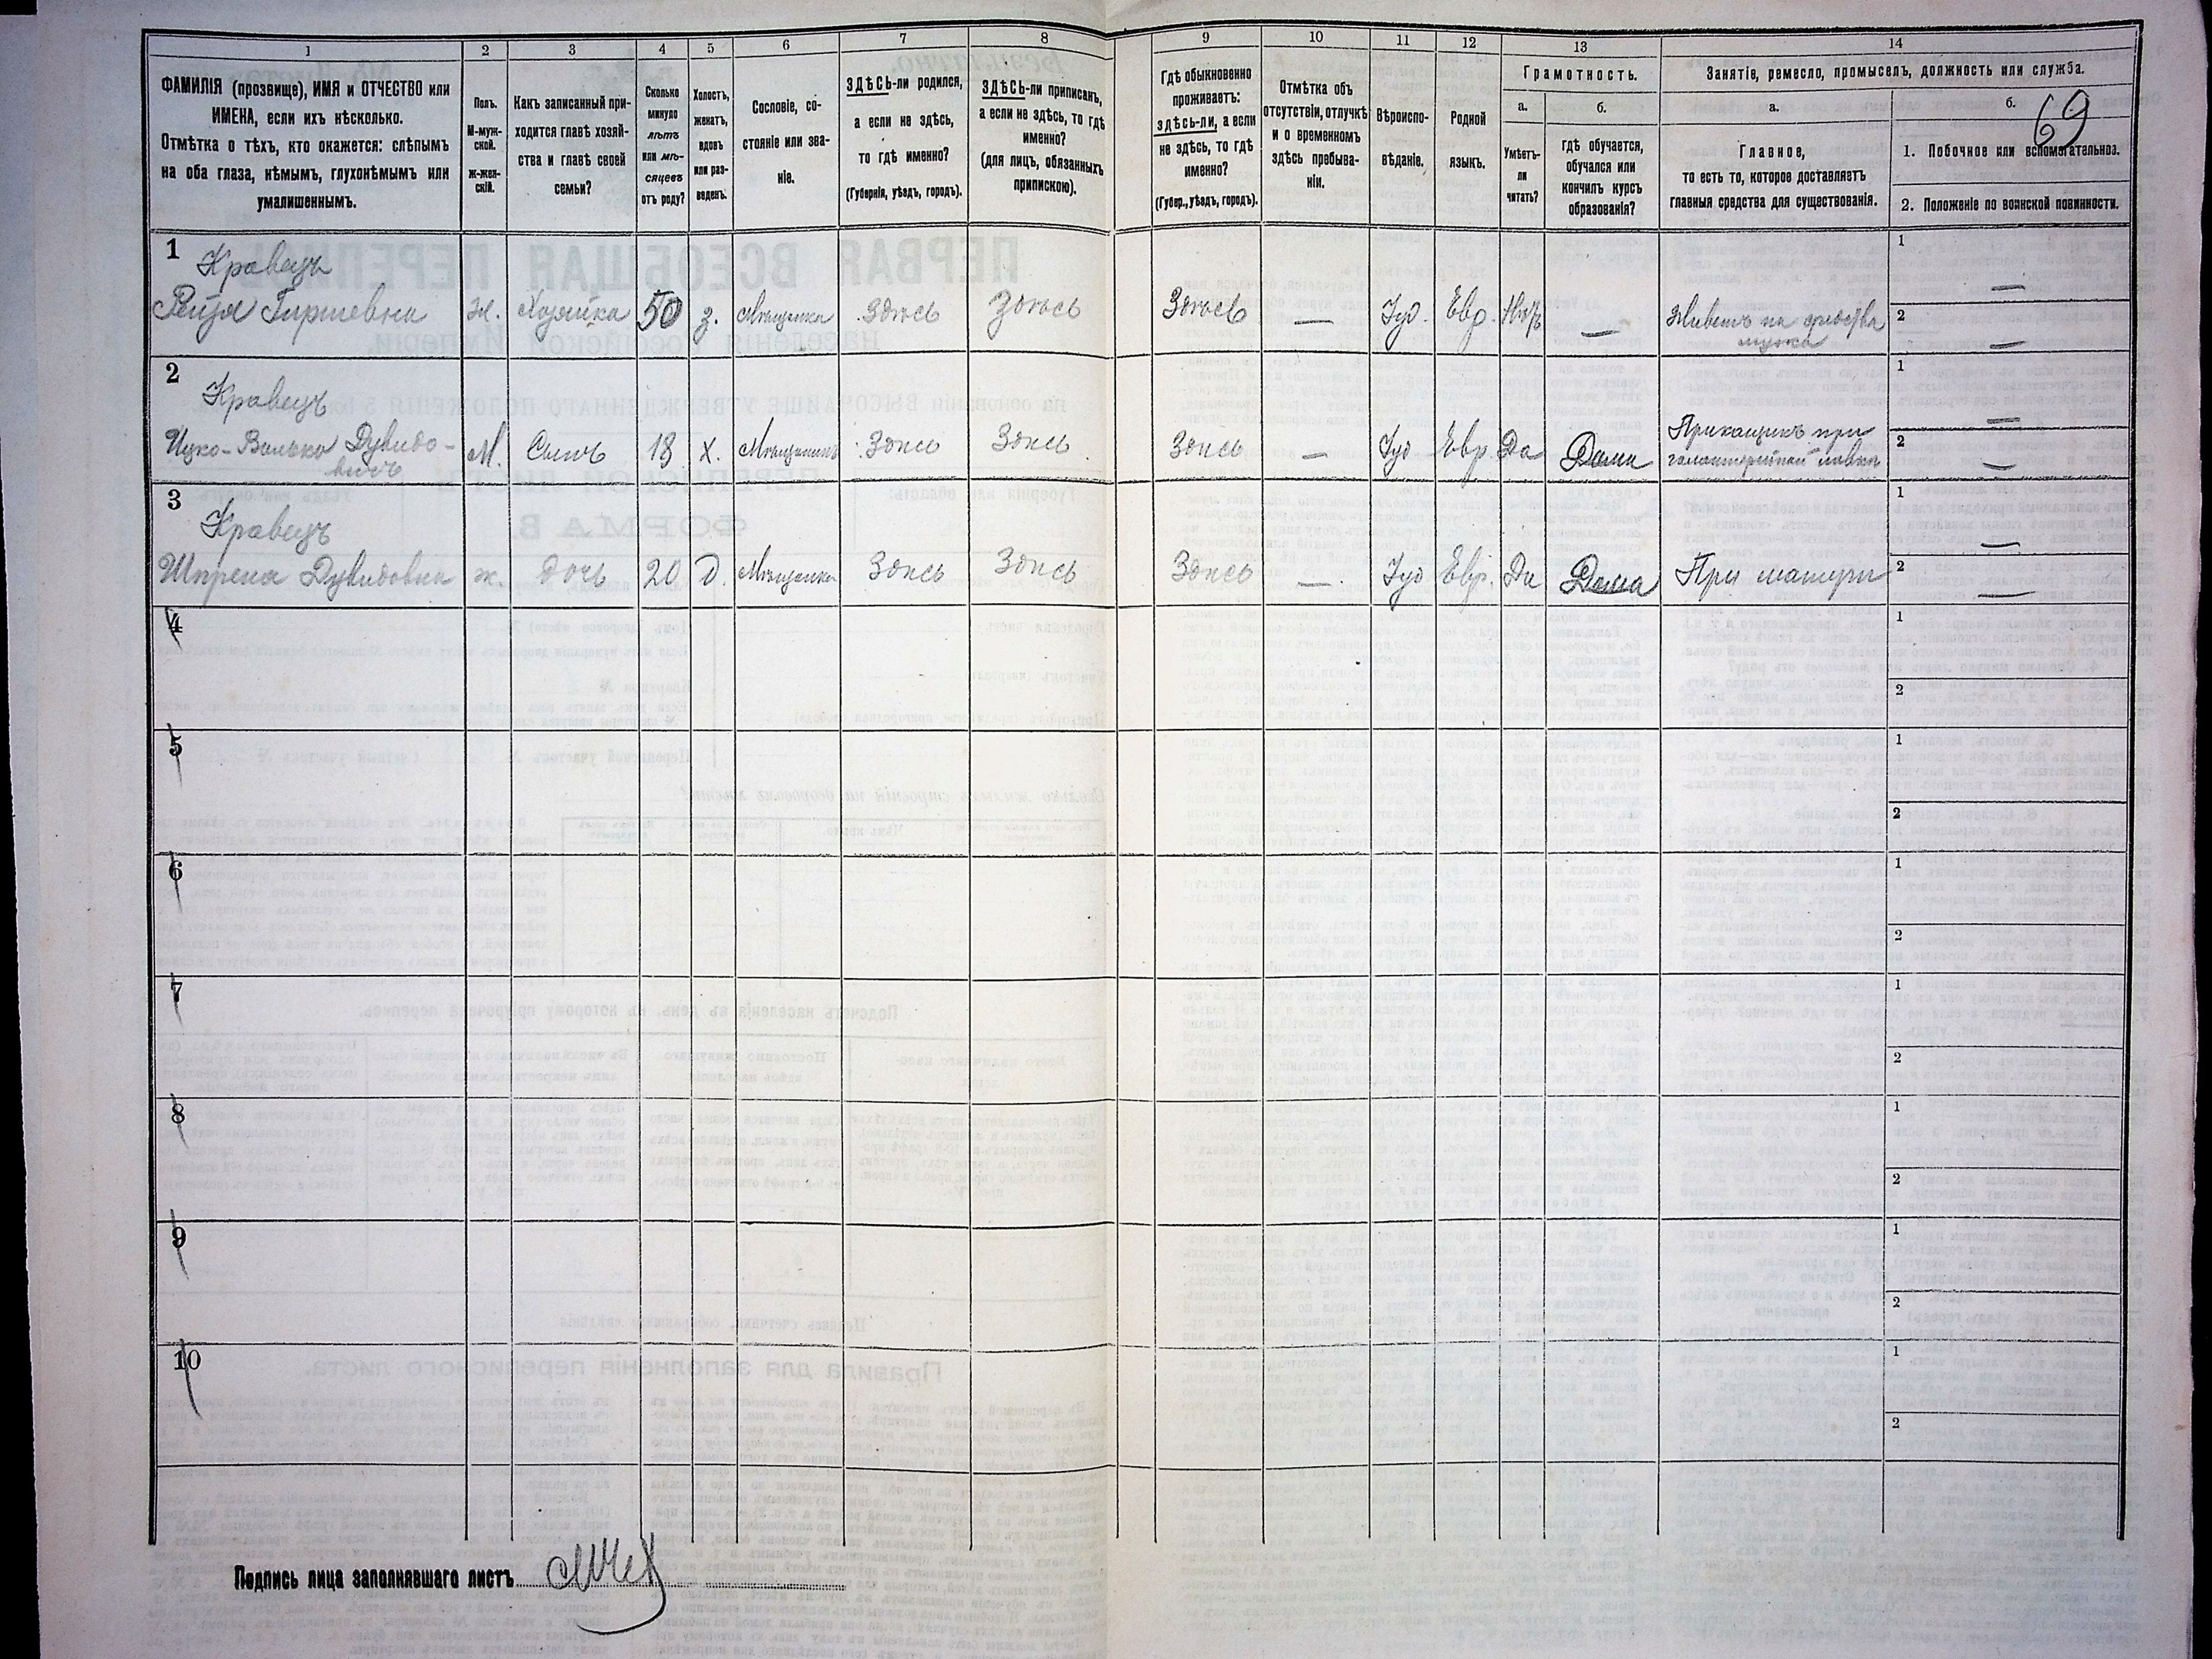 1 2 3 4 5 6 7 8 9 10 11 12 13 14
ФАМИЛІЯ (прозвище), ИМЯ и ОТЧЕСТВО или
ИМЕНА, если ихъ нѣсколько.
Отмѣтка о тѣхъ, кто окажется: слѣпымъ
на оба глаза, нѣмымъ, глухонѣмымъ или
умалишеннымъ.
Полъ.
М-муж-
ской.
ж-жен-
скій.
Какъ записанный при-
ходится главѣ хозяй-
ства и главѣ своей
семьи?
Сколько
минуло
лѣтъ
или мѣ-
сяцевъ
отъ роду?
Холостъ,
женатъ,
вдовъ
или раз-
веденъ.
Сословіе, со-
стояніе или зва-
ніе.
ЗДѢСЬ-ли родился,
а если не здѣсь,
то гдѣ именно?
(Губернія, уѣздъ, городъ).
ЗДѢСЬ-ли приписанъ,
а если не здѣсь, то гдѣ
именно?
(для лицъ, обязанныхъ
припискою).
Гдѣ обыкновенно
проживаетъ:
здѣсь-ли, а если
не здѣсь, то гдѣ
именно?
(Губер., уѣздъ, городъ).
Отмѣтка объ
отсутствіи, отлучкѣ
и о временномъ
здѣсь пребыва-
ніи.
Вѣроиспо-
вѣданіе.
Родной
языкъ.
Грамотность.
а.
Умѣетъ-
ли
читать?
б.
гдѣ обучается,
обучался или
кончилъ курсъ
образованія?
Занятіе, ремесло, промыселъ, должность или служба.
а.
Главное,
то есть то, которое доставляетъ
главныя средства для существованія.
б.
69
1. Побочное или вспомогательное.
2. Положеніе по воинской повинности.
1 Кравецъ
Рейзя Гиршевна ж. Хозяйка 50 з. Мѣщанка Здѣсь Здѣсь Здѣсь — Іуд. Евр. Нѣтъ — Живетъ на средства
мужа
1 —
2 —
2 Кравецъ
Ицко-Волько Дувидо-
вичъ М. Сынъ 18 х. Мѣщанинъ Здѣсь Здѣсь Здѣсь — Іуд Евр. Да Дома Прикащикъ при
галантерейной лавкѣ
1 —
2 —
3 Кравецъ
Шпренa Дувидовна ж. дочь 20 д. Мѣщанка Здѣсь Здѣсь Здѣсь — Іуд Евр. Да Дома При матери
1 —
2 —
4
1
2
5
1
2
6
1
2
7
1
2
8
1
2
9
1
2
10
1
2
Подпись лица заполнявшаго листъ